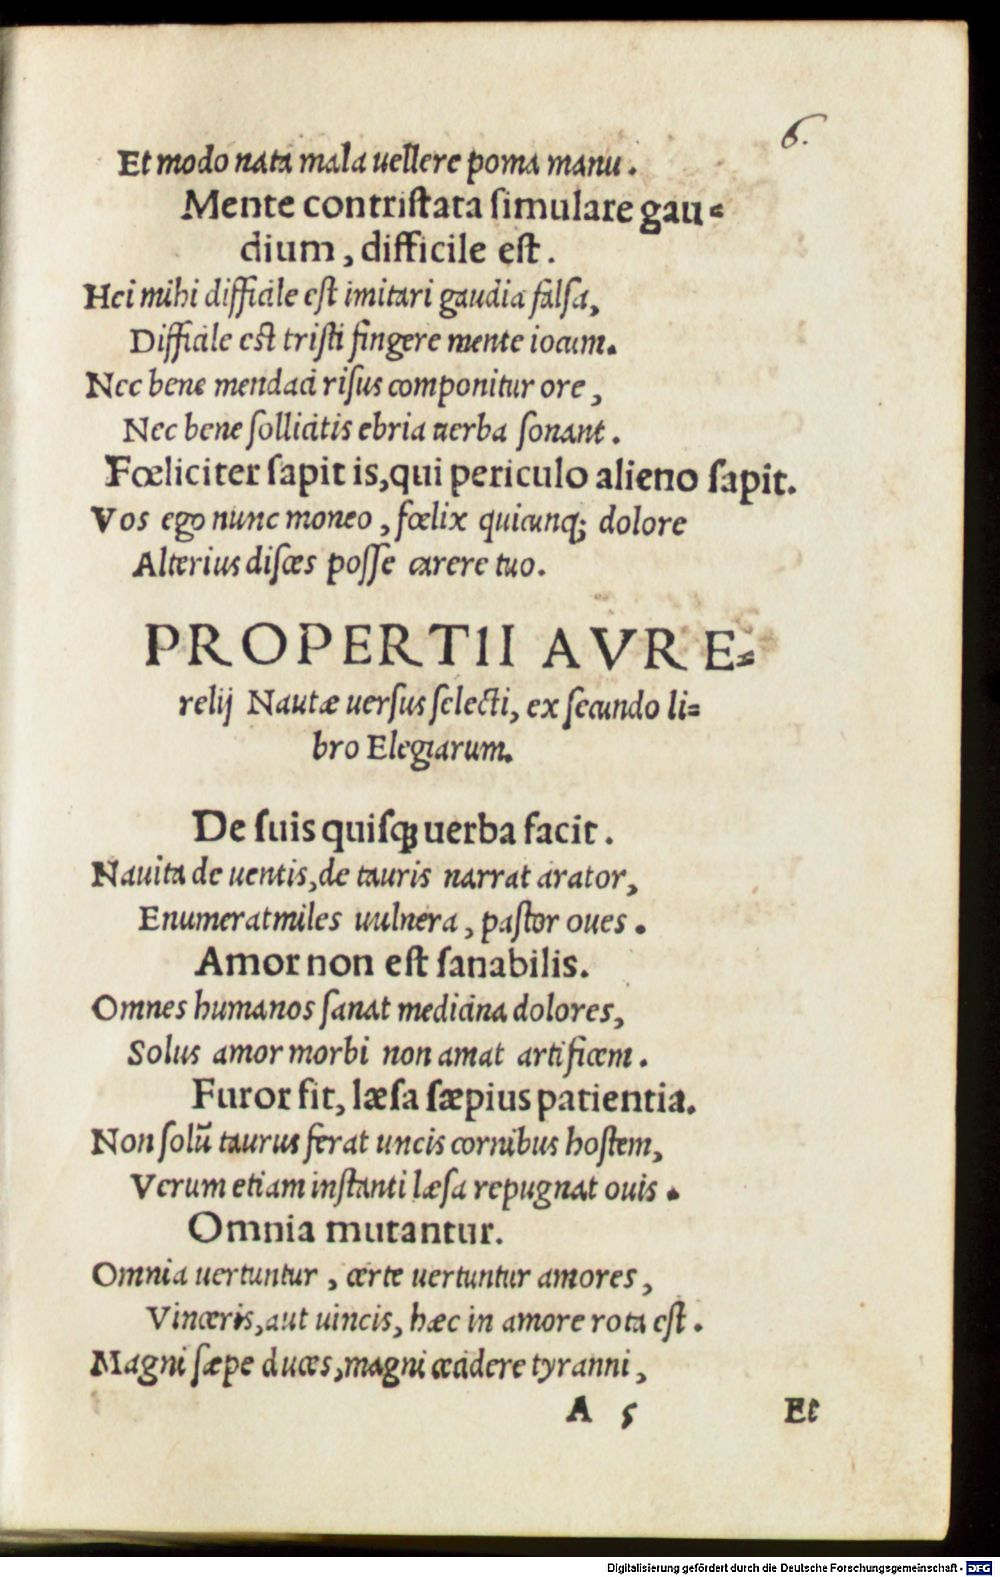 6.
Et modo nata mala uellere poma manu.
Mente contriſtata ſimulare gau⸗
dium, difficile eſt.
Hei mihi difficile eſt imitari gaudia falſa,
Difficile eſt triſti fingere mente iocum.
Nec bene mendaci riſus componitur ore,
Nec bene ſollicitis ebria uerba ſonant.
Fœliciter ſapit is, qui periculo alieno ſapit.
Vos ego nunc moneo, fœlix quicunq; dolore
Alterius diſces poſſe carere tuo.
PROPERTII AVRE⸗
relij Nautæ uerſus ſelecti, ex ſecundo li⸗
bro Elegiarum.
De ſuis quiſq; uerba facit.
Nauita de uentis, de tauris narrat arator,
Enumerat miles uulnera, paſtor oues.
Amor non eſt ſanabilis.
Omnes humanos ſanat medicina dolores,
Solus amor morbi non amat artificem.
Furor fit, læſa ſæpius patientia.
Non ſolũ taurus ferat uncis cornibus hoſtem,
Verum etiam inſtanti læſa repugnat ouis.
Omnia mutantur.
Omnia uertuntur, certe uertuntur amores,
Vinceris, aut uincis, hæc in amore rota eſt.
Magni ſæpe duces, magni cecidere tyranni,
A 5 Et
Digitalisierung gefördert durch die Deutsche Forschungsgemeinschaft - DFG